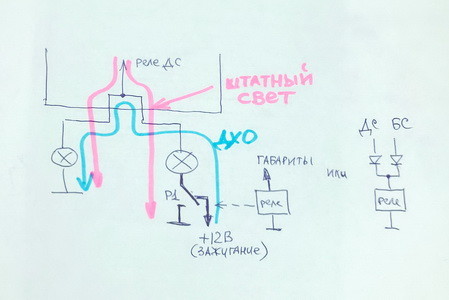 реле ДС
ШТАТНЫЙ
СВЕТ
ДХО
ДС БС
ГАБАРИТЫ или
Р1
реле
реле
+12В
(ЗАЖИГАНИЕ)